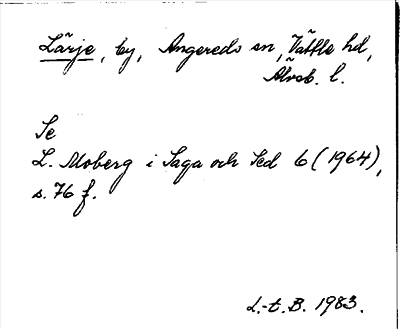 Lärje, by, Angereds sn, Vättle hd,
Älvsb. l.
Se
L. Moberg i Saga och Sed 6 (1964),
s. 76 f.
L.-t. B. 1983.